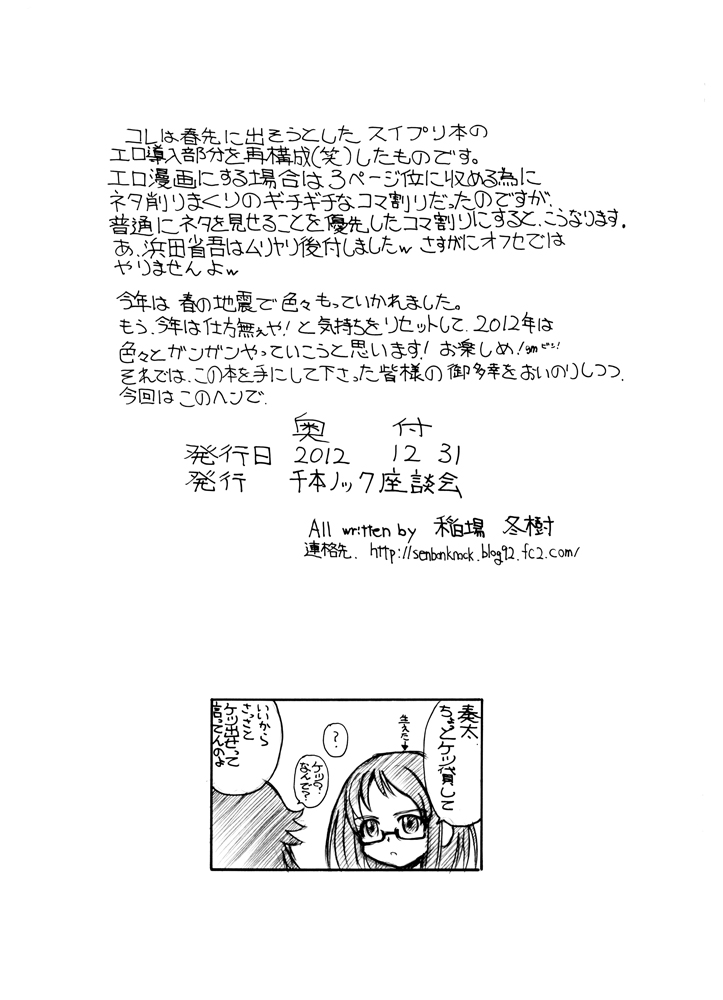 コレは春先に出そうとした スイプリ本の
エロ導入部分を再構成(笑)したものです。
エロ漫画にする場合は3ページ位に収める為に
ネタ削りまくりのギチギチなコマ割りだったのですが、
普通にネタを見せることを優先したコマ割りにすると、こうなります。
あ、浜田省吾はムリヤリ後付しましたw さすがにオフセでは
やりませんよw
今年は 春の地震で色々もっていかれました。
もう、今年は仕方無ぇや!と気持ちをリセットして、2012年は
色々とガンガンやっていこうと思います! お楽しめ!
それでは、この本を手にして下さった皆様の御多幸をおいのりしつつ、
今回はこのヘンで.
奥 付
発行日 2012 12 31
発行 千本ノック座談会
All written by 稲場 冬樹
連絡先. http://senbonknock.blog92.fc2.com/
奏太
ちょっとケツ貸して
生えた
?
ケツ?
なんで?
いいから
さっさと
ケツ出せって
言ってんのよ